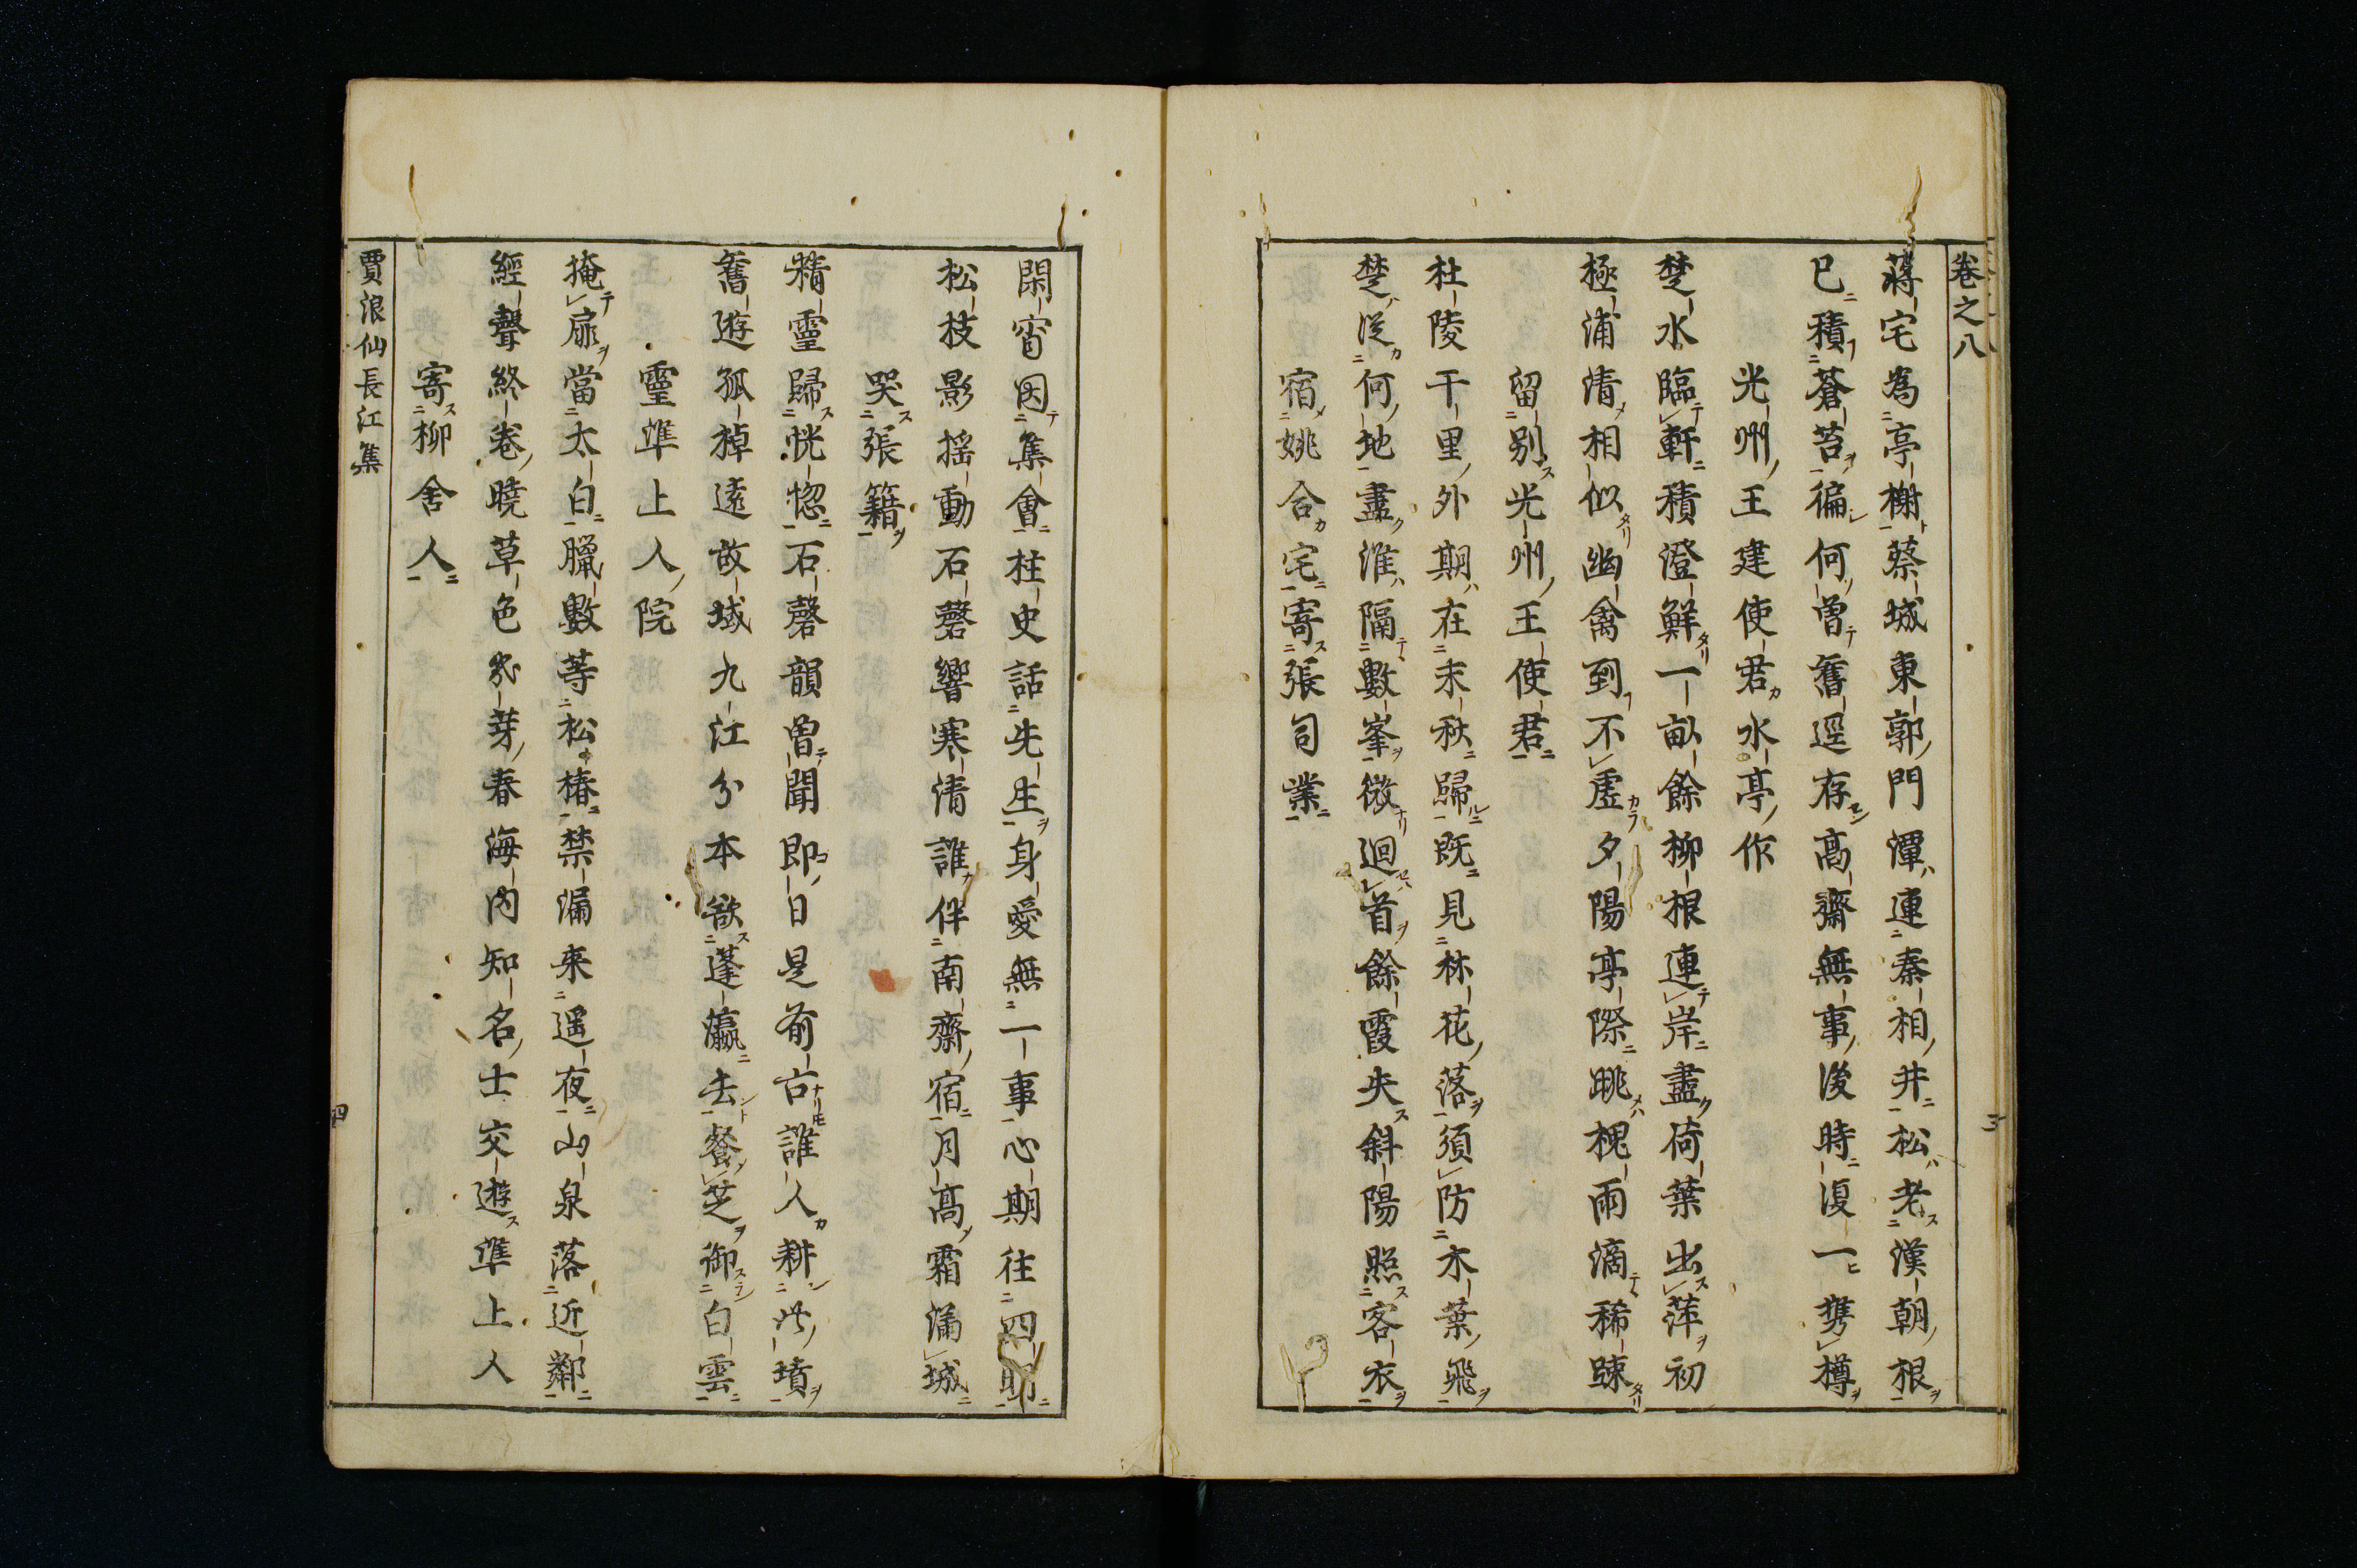 卷之八
三
蔣宅為亭榭蔡城東郭門潭連秦相井松老漢朝根
已積蒼苔徧何曾舊逕存高齋無事後時復一携樽
光州王建使君水亭作
楚水臨軒積澄鮮一畝餘柳根連岸盡荷葉出萍初
極浦清相似幽禽到不虛夕陽亭際眺槐雨滴稀踈
留別光州王使君
杜陵千里外期在末秋歸既見林花落須防木葉飛
楚從何地盡淮隔數峯微迴首餘霞失斜陽照客衣
宿姚合宅寄張司業
閑宵因集會柱史話先生身愛無一事心期往四明
松枝影揺動石磬響寒清誰伴南齋宿月高霜滿城
哭張籍
精靈歸恍惚石磬韻曾聞即日是前古誰人耕此墳
舊遊孤棹遠故域九江分本欲蓬瀛去餐芝御白雲
靈準上人院
掩扉當太白臘數等松椿禁漏来遥夜山泉落近鄰
經聲終卷曉草色幾芽春海内知名士交遊準上人
寄柳舍人
賈浪仙長江集
四